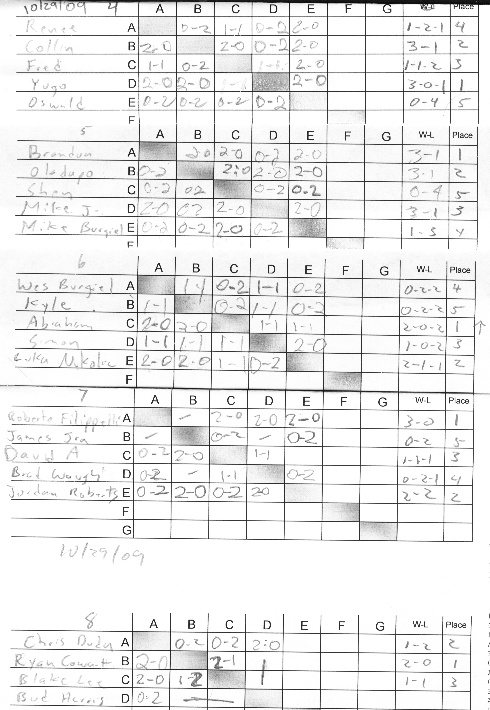 10/29/09 4 A B C D E F G W-L Place
Renee A 0-2 1-1 0-2 2-0 1-2-1 4
Collin B 2-0 2-0 0-2 2-0 3-1 2
Fred C 1-1 0-2 1-1 2-0 1-1-2 3
Yugo D 2-0 2-0 2-0 3-0-1 1
Oswald E 0-2 0-2 0-2 0-2 0-4 5
F
5 A B C D E F G W-L Place
Brandon A 2-0 2-0 0-2 2-0 3-1 1
Oledapo B 0-2 2-0 2-0 2-0 3-1 2
Shen C 0-2 0-2 0-2 0-2 0-4 5
Mike J. D 2-0 0-2 2-0 2-0 3-1 3
Mike Burgiel E 0-2 0-2 2-0 0-2 1-3 4
F
6 A B C D E F G W-L Place
Wes Burgiel A 1-1 0-2 1-1 0-2 0-2-2 4
Kyle B 1-1 0-2 1-1 0-2 0-2-2 5
Abraham C 2-0 2-0 1-1 1-1 2-0-2 1
Simon D 1-1 1-1 1-1 2-0 1-0-2 3
Luka Nikolic E 2-0 2-0 1-1 0-2 2-1-1 2
F
7 A B C D E F G W-L Place
Roberto Filippelli A – 2-0 2-0 2-0 3-0 1
James B – 0-2 – 0-2 0-2 5
David A C 0-2 2-0 1-1 1-1-1 3
Brad Waugh D 0-2 – 1-1 0-2 0-2-1 4
Jordan Roberts E 0-2 2-0 0-2 2-0 2-2 2
F
G
10/29/09
8 A B C D E F G W-L Place
Chris Duda A 0-2 0-2 2-0 1-2 2
Ryan Cowart B 2-0 2-1 2-0 1
Blake Lee C 2-0 1-2 1-1 3
Bud Harris D 0-2